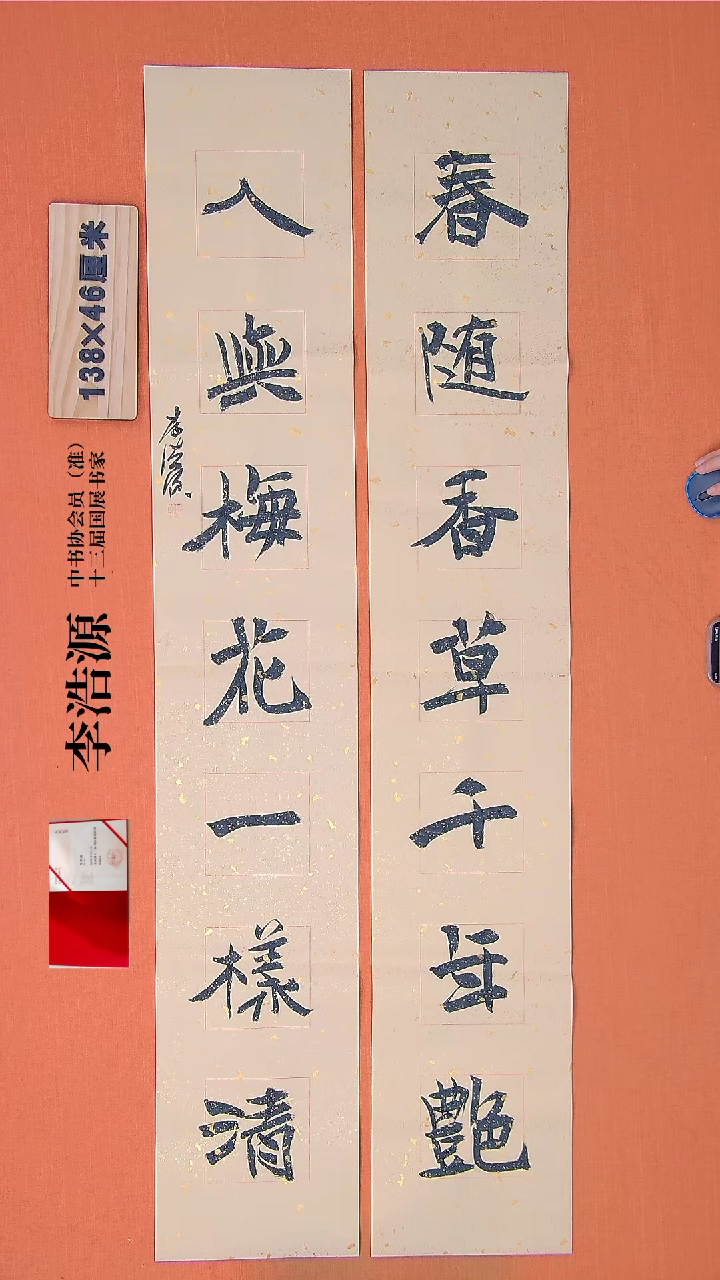 春随香草千年艷
人與梅花一樣清
李浩源
138×46厘米
中书协会员（准）
十三届国展书家
李浩源